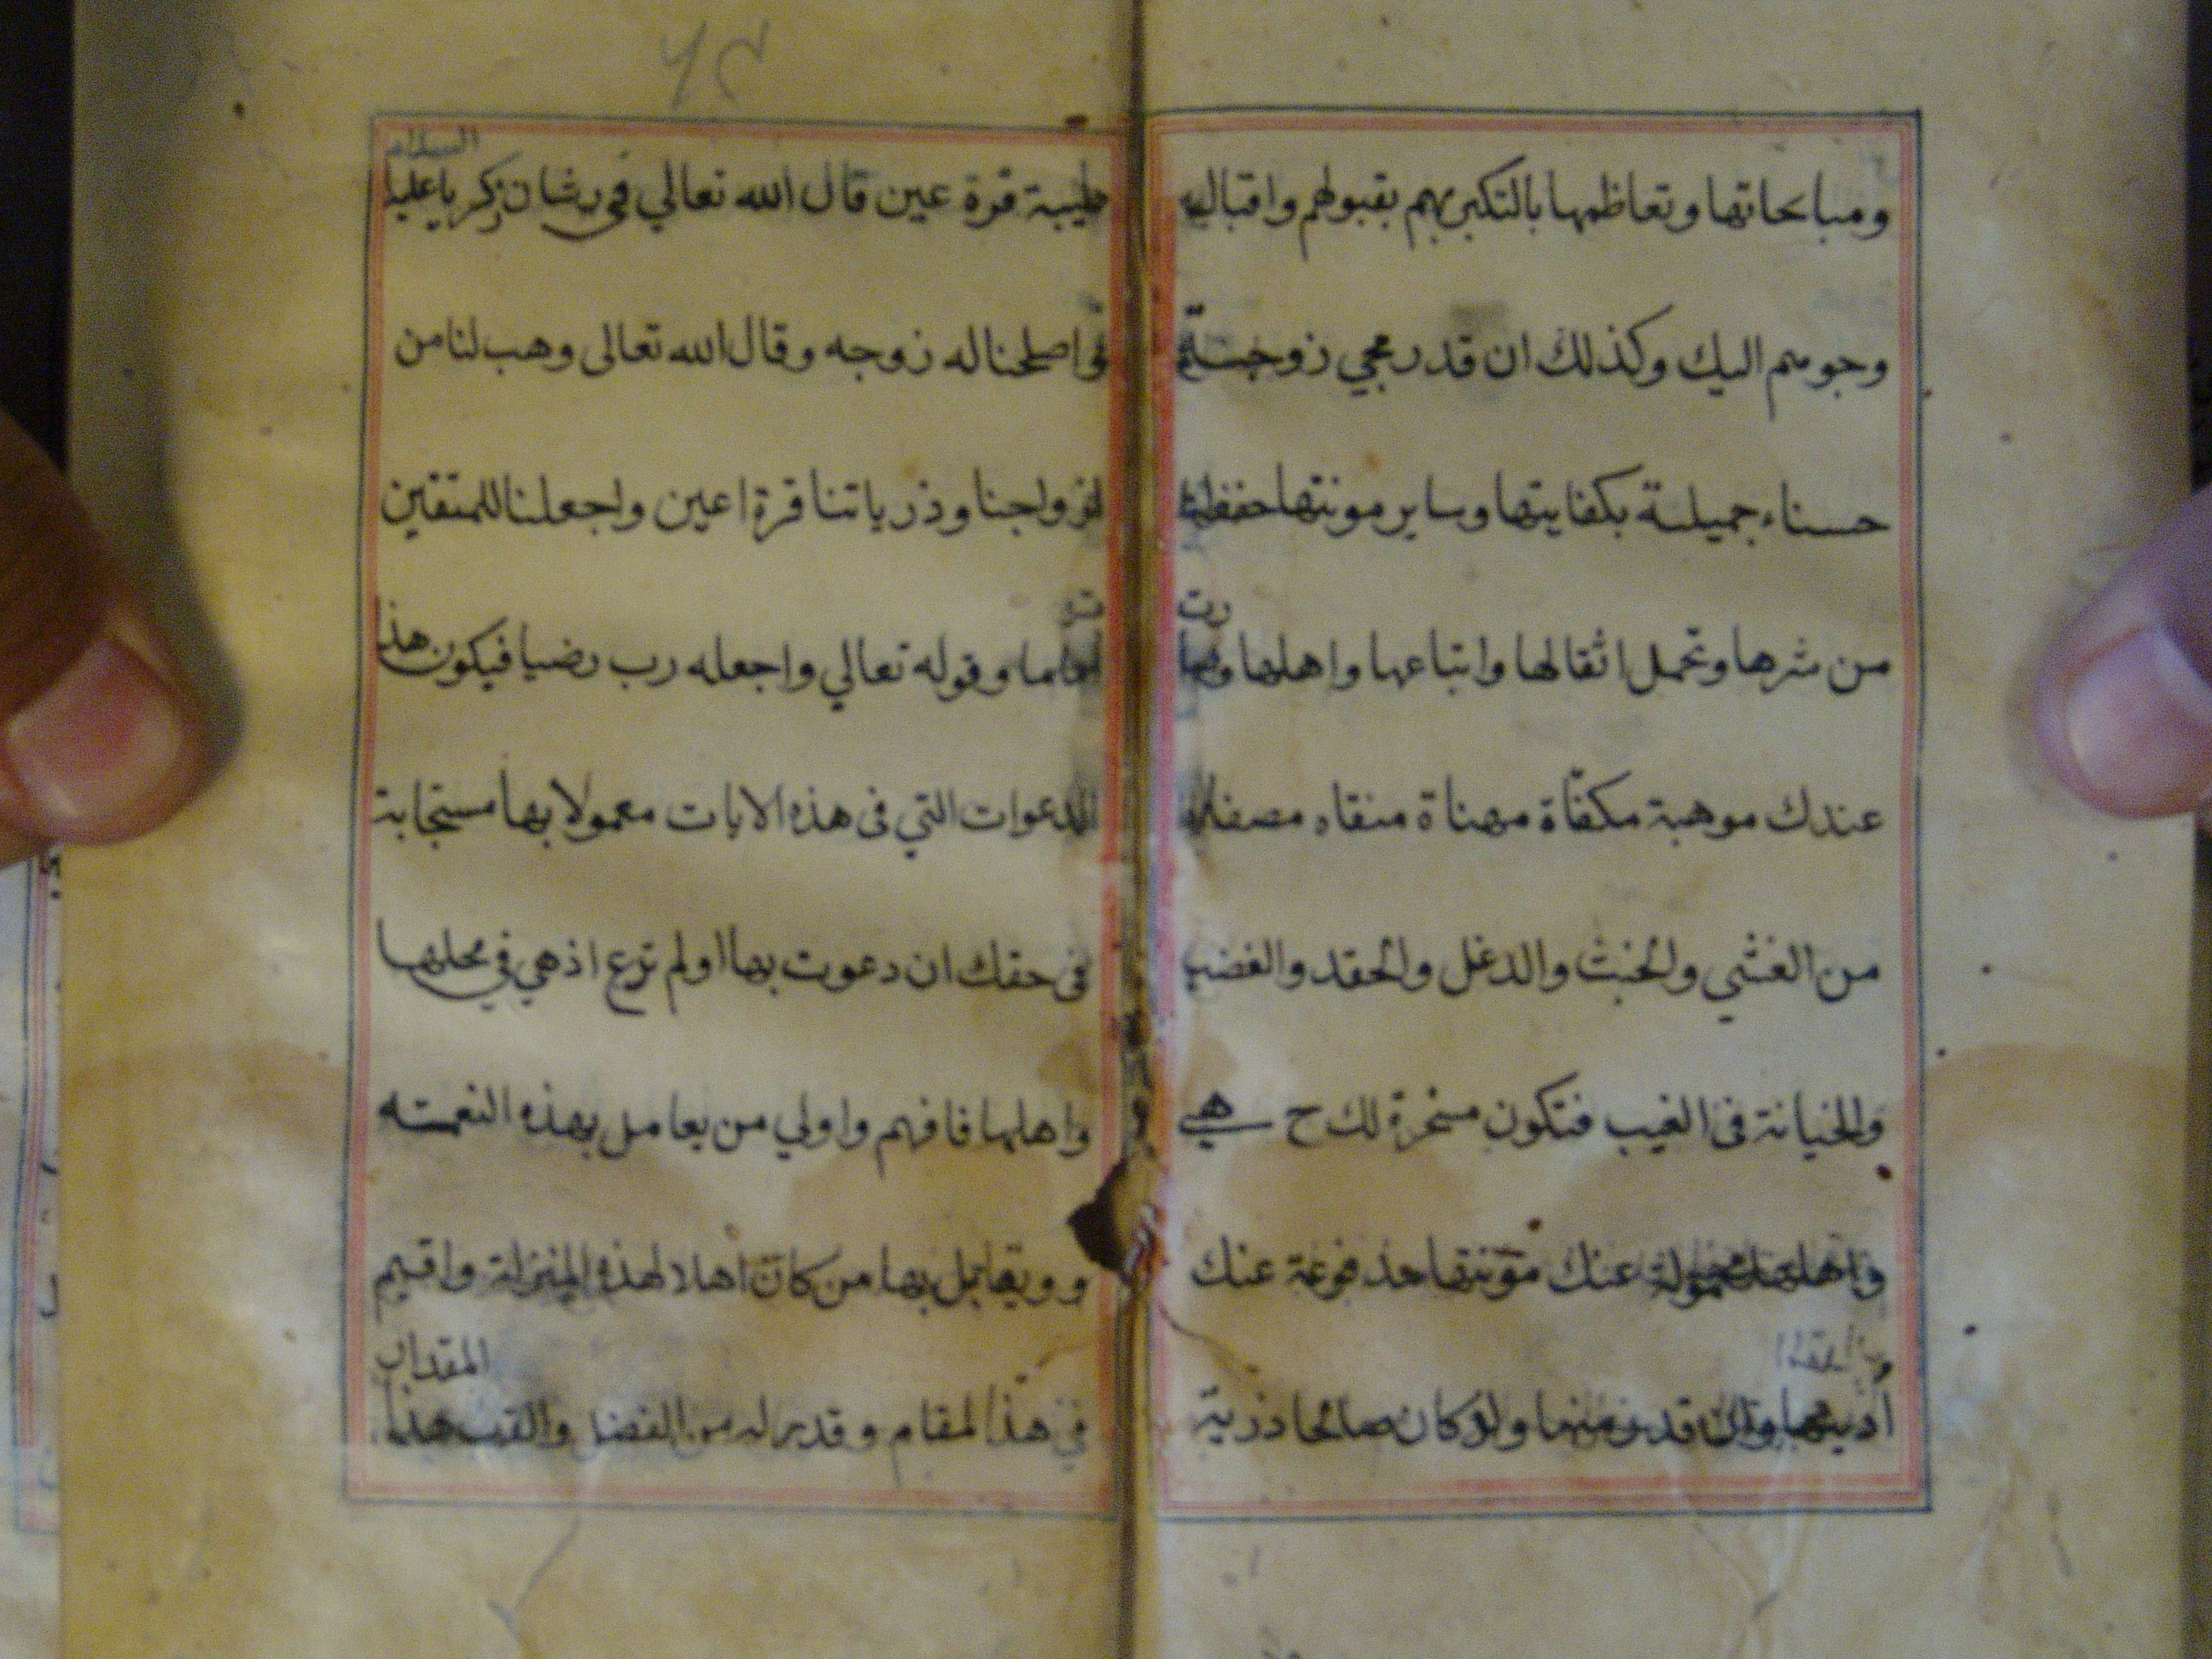 ومباحاتها وتعاظمها بالتكبر بهم بقبولهم واقبال
وجوههم اليك وكذلك ان قدر مجي زوجتـ
حسناء جميلة بكفايتها وساير مونتها حفظك
من شرها وتحمل اثقالها واتباعها واهلها
عندك موهبة مكفاة مهناة منقاه مصفاه
من الغشي والخبث والدغل والحقد والغضب
والخيانة فى الغيب فتكون مسخرة لك ح هي
واهلها محمولة عنك مؤنتها عنك
اذيتها وان قدر منها ولد كان صالحا ذرية
٥٩
طيبة قرة عين قال الله تعالي في شان زكريا عليه
السلام
واصلحنا له زوجه وقال الله تعالى وهب لنا من
ازواجنا وذرياتنا قرة اعين واجعلنا للمتقين
اماما وقوله تعالي واجعله رب رضيا فيكون هذ
الدعوات التي فى هذه الايات معمولا بها مستجابة
فى حقك ان دعوت بها اولم تدع اذ هي في محلها
واهلها فافهم واولي من يعامل بهذه النعمته
و ويقابل بها من كان اهلا لهذه المنزلة واقيم
في هذا المقام وقدر له من الفضل هذا
المقدار